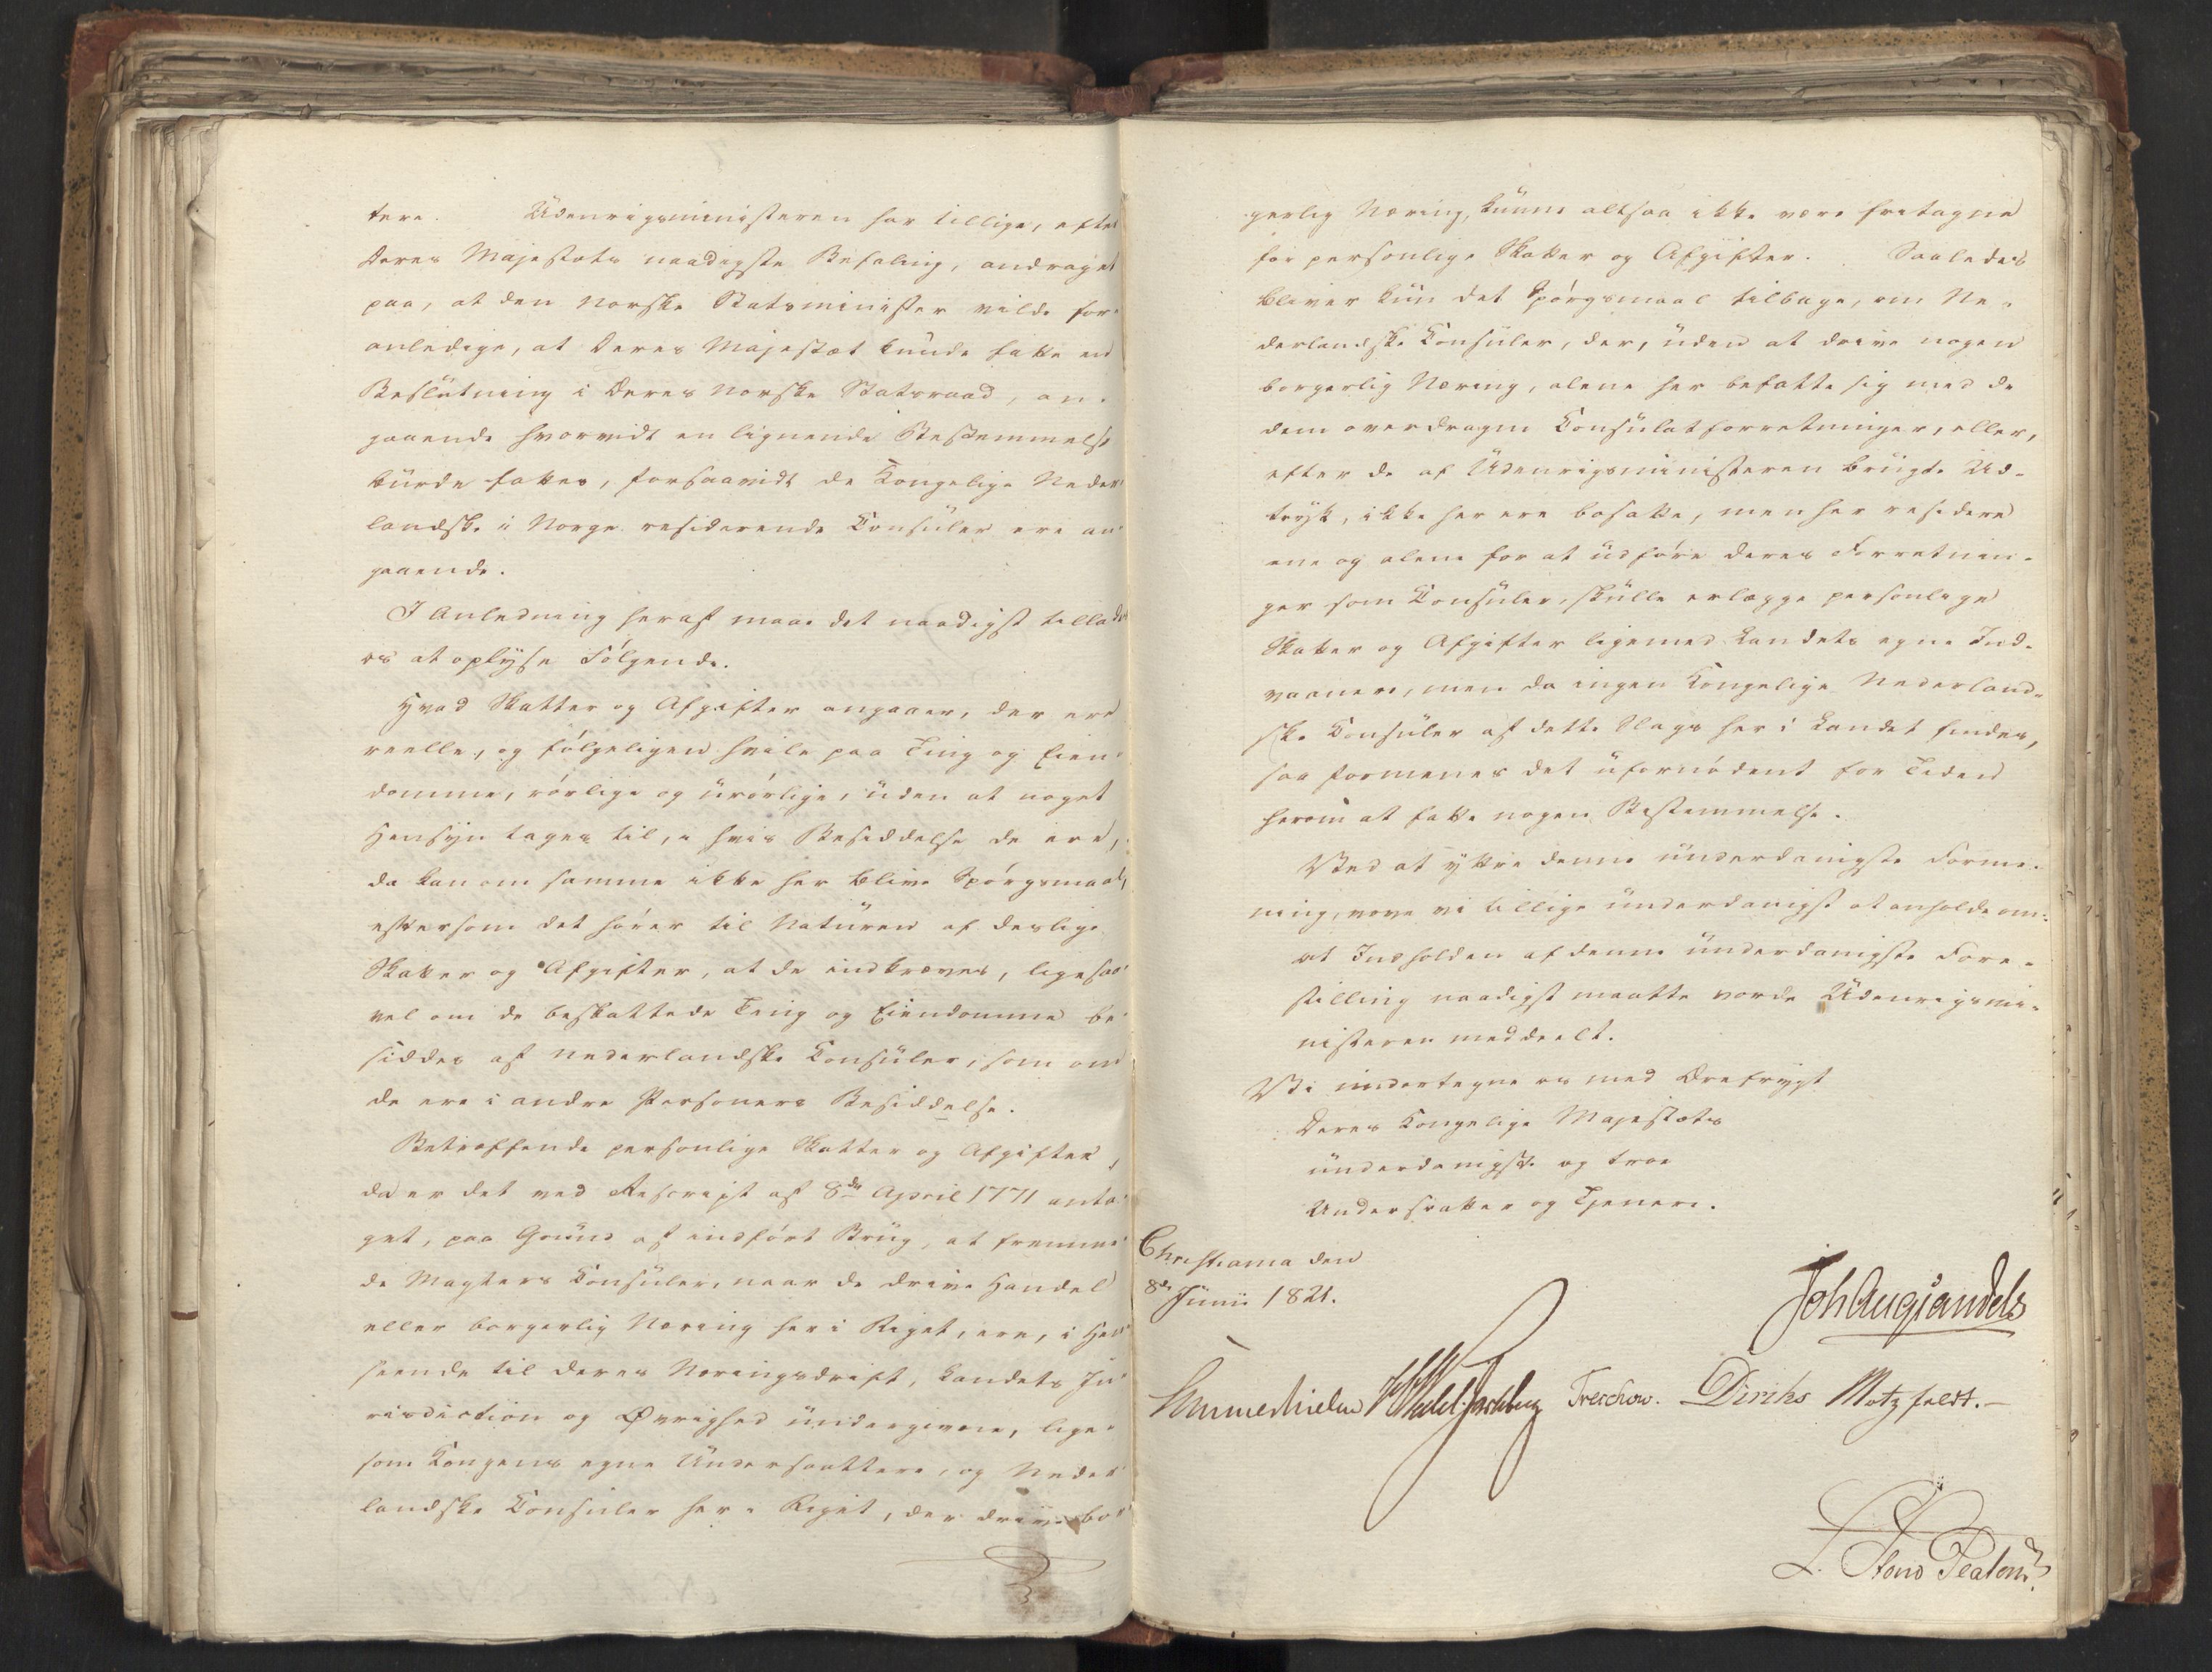 tere. Udenrigsministeren har tillige, efter
Deres Majestæts naadigste Befaling, andraget
paa, at den norske Statsminister vilde for-
anledige, at Deres Majestæt kunde fatte en
Beslutning i Deres norske Statsraad, an-
gaaende hvorvidt en lignende Bestemmelse
burde fattes, forsaavidt de Kongelige Neder-
landske i Norge residerende Consuler ere an-
gaaende.
I Anledning heraf maae det naadigst tillades
os at oplyse Følgende.
Hvad Skatter og Afgifter angaaer, der ere
reelle, og følgeligen hvile paa Ting og Eien-
domme, rørlige og urørlige, uden at noget
Hensyn tages til, i hvis Besiddelse de ere,
da kan om samme ikke her blive Spørgsmaal,
eftersom det hører til Naturen af deslige
Skatter og Afgifter, at de indkræves, ligesaa
vel om de beskattede Ting og Eiendomme be-
siddes af nederlandske Consuler, som om
de ere i andre Personers Besiddelse.
Betræffende personlige Skatter og Afgifter,
da er det ved Rescript af 8de April 1771 anta-
get, paa Grund af indført Brug, at fremme-
de Magters Consuler, naar de drive Handel
eller borgerlig Næring her i Riget, ere, i Hen-
seende til deres Næringsdrift, Landets Ju-
risdiction og Øvrighed undergivne, lige-
som Kongens egne Undersaattere, og Neder-
landske Consuler her i Riget, der drive bor-
gerlig Næring, kunne altsaa ikke være fritagne
for personlige Skatter og Afgifter. Saaledes
bliver kun det Spørgsmaal tilbage, om Ne-
derlandske Consuler, der, uden at drive nogen
borgerlig Næring, alene her befatte sig med de
dem overdragne Consulatforretninger, eller,
efter de af Udenrigsministeren brugte Ud-
tryk, ikke her ere bosatte, men her residere
ene og alene for at udføre deres Forretnin-
ger som Consuler, skulle erlægge personlige
Skatter og Afgifter ligemed Landets egne Ind-
vaanere, men da ingen Kongelige Nederland-
ske Consuler af dette Slags her i Landet findes,
saa formenes det ufornødent for Tiden
herom at fatte nogen Bestemmelse.
Ved at yttre denne underdanigste Forme-
ning, vove vi tillige underdanigst at anholde om:
at Indholden af denne underdanigste Fore-
stilling naadigst maatte vorde Udenrigsmi-
nisteren meddeelt.
Vi undertegne os med Ærefrygt
Deres Kongelige Majestæts
underdanigste og troe
Undersatter og Tjenere.
Christiania den
8de Junii 1821.
Joh Aug Sandels
Sommerhielm Wedel Jarlsberg Treschow. Diriks Motzfeldt.
L. Stoud Platou